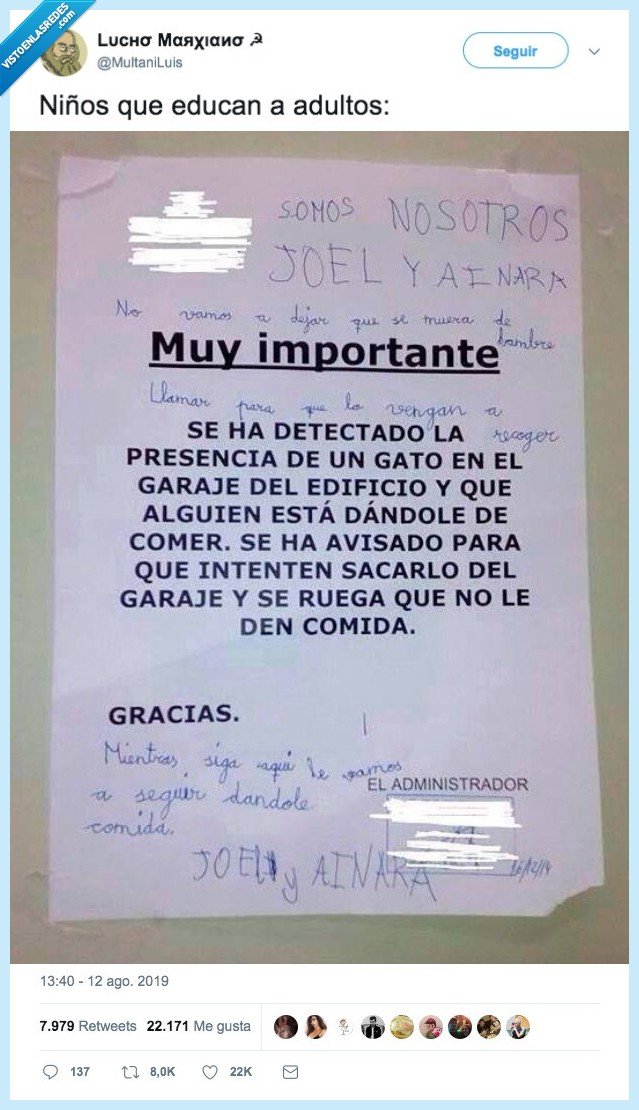 VISTOENLASREDES
.com
Lucнσ Mαяχιαиσ ☭
@MultaniLuis
Seguir
Niños que educan a adultos:
SOMOS NOSOTROS
JOEL Y AINARA
No vamos a dejar que se muera de
hambre
Muy importante
Llamar para que lo vengan a
recoger
SE HA DETECTADO LA
PRESENCIA DE UN GATO EN EL
GARAJE DEL EDIFICIO Y QUE
ALGUIEN ESTÁ DÁNDOLE DE
COMER. SE HA AVISADO PARA
QUE INTENTEN SACARLO DEL
GARAJE Y SE RUEGA QUE NO LE
DEN COMIDA.
GRACIAS.
Mientras, siga aquí le vamos
a seguir dandole
comida.
EL ADMINISTRADOR
JOEL y AINARA
13:40 - 12 ago. 2019
7.979 Retweets 22.171 Me gusta
137 8,0K 22K